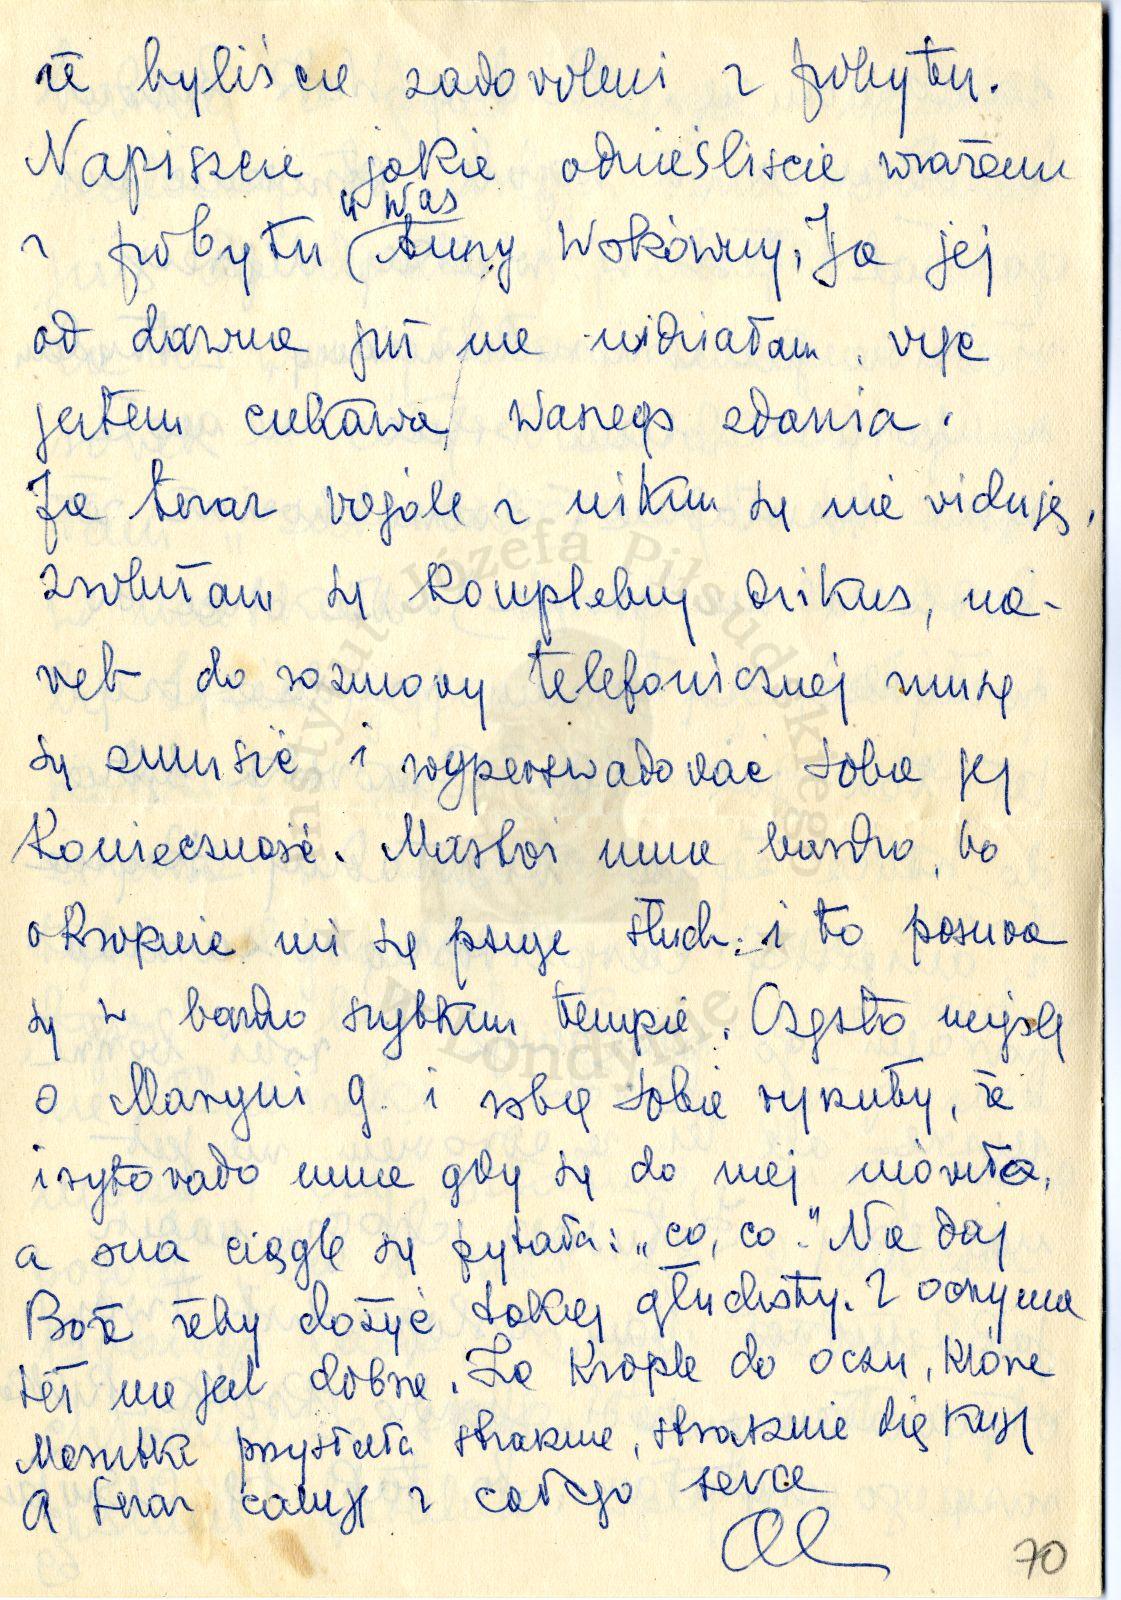 że byliście zadowoleni z pobytu.
Napiszcie jakie odnieśliście wrażeni
z pobytu (u Was Anny Ja jej
od dawna już nie widziałam, więc
jestem ciekawa Waszego zdania.
Ja teraz wogóle z nikim się nie widuję,
zrobiłam się kompletny dzikus, na-
wet do rozmowy telefonicznej muszę
się zmusić i wyperswadować sobie jej
Konieczność. Martwi mnie bardzo, bo
okropnie mi się psuje słuch. i to posuwa
się w bardzo szybkim tempie. Często myślę
o Maryni G. i robię sobie wyrzuty, że
irytowało mnie gdy się do niej mówiło,
a ona ciągle się pytała: „co, co." Nie daj
Boże żeby dożyć takiej głuchoty. Z oczyma
też nie jest dobrze. Za krople do oczu, które
przysłała strasznie, strasznie dziękuję
A teraz całuję z całego serca
70
Instytut Józefa Piłsudskiego
w Londynie